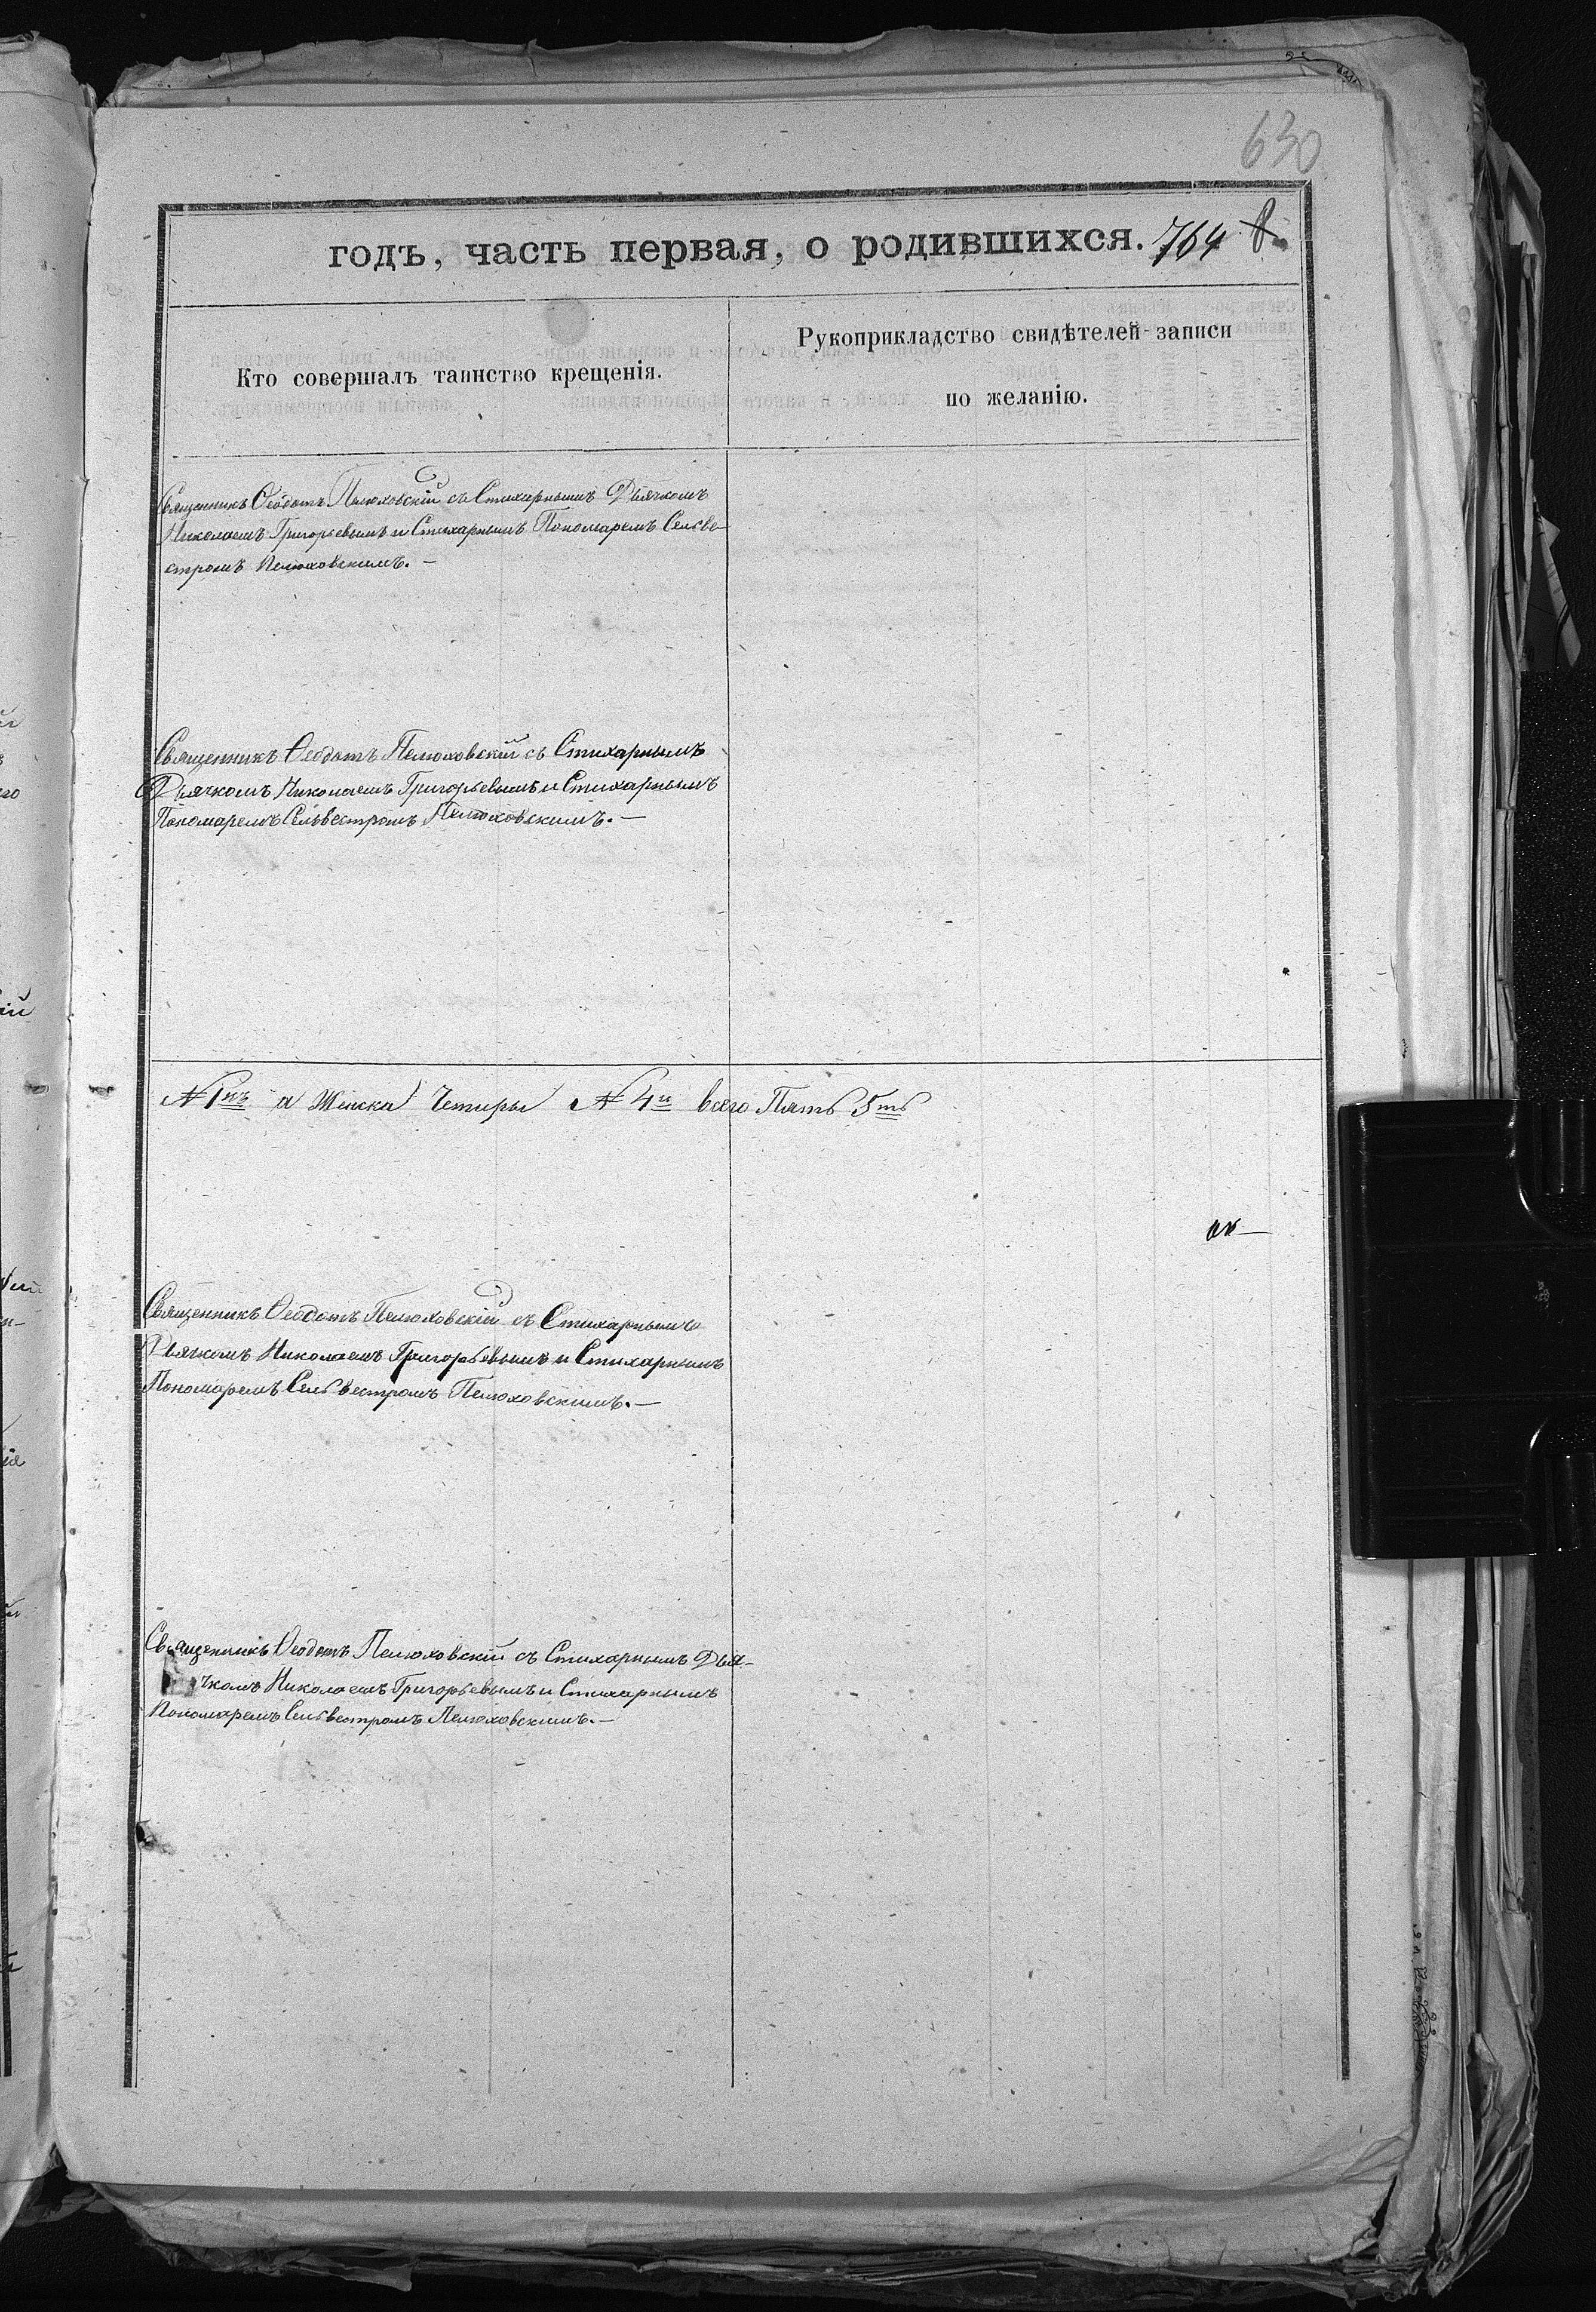 630
годъ, часть первая, о родившихся. 764
Кто совершалъ таинство крещенія.
Рукоприкладство свидѣтелей записи
по желанію.
Священникъ Ѳеодотъ Пелюховскій съ Стихарнымъ Дьячкомъ
Николаемъ Григорьевымъ и Стихарнымъ Пономаремъ Сельве-
стромъ Пелюховскимъ. —
Священникъ Ѳеодотъ Пелюховскій съ Стихарнымъ
Дьячкомъ Николаемъ Григорьевымъ и Стихарнымъ
Пономаремъ Сельвестромъ Пелюховскимъ. —
№ 1нъ а Женска Четыры № 4и всего Пять 5ть
Священникъ Ѳеодотъ Пелюховскій съ Стихарнымъ
Дьячкомъ Николаемъ Григорьевымъ и Стихарнымъ
Пономаремъ Сельвестромъ Пелюховскимъ. —
Священникъ Ѳеодотъ Пелюховскій съ Стихарнымъ Дья-
чкомъ Николаемъ Григорьевымъ и Стихарнымъ
Пономаремъ Сельвестромъ Пелюховскимъ. —